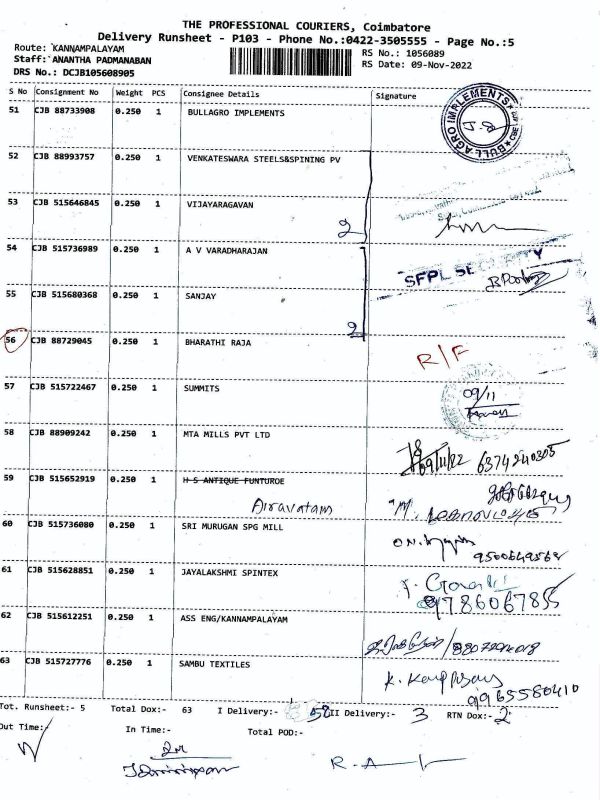 THE PROFESSIONAL COURIERS, Coimbatore
Delivery Runsheet - P103 - Phone No.:0422-3505555 - Page No.:5
Route: KANNAMPALAYAM
RS No.: 1056089
Staff: ANANTHA PADMANABAN
RS Date: 09-Nov-2022
DRS No.: DCJB105608905
S No Consignment No Weight PCS Consignee Details Signature
51 CJB 88733908 0.250 1 BULLAGRO IMPLEMENTS
BULL AGRO IMPLEMENTS CBE
52 CJB 88993757 0.250 1 VENKATESWARA STEELS&SPINING PV
53 CJB 515646845 0.250 1 VIJAYARAGAVAN
2
54 CJB 515736989 0.250 1 A V VARADHARAJAN
SFPL SECURITY
55 CJB 515680368 0.250 1 SANJAY
2
56 CJB 88729045 0.250 1 BHARATHI RAJA R/F
57 CJB 515722467 0.250 1 SUMMITS 09/11
58 CJB 88909242 0.250 1 MTA MILLS PVT LTD
09/11/22 6374240305
59 CJB 515652919 0.250 1 H S ANTIQUE FUNTUROE
Airavatam
60 CJB 515736080 0.250 1 SRI MURUGAN SPG MILL
9500649568
61 CJB 515628851 0.250 1 JAYALAKSHMI SPINTEX
9786067855
62 CJB 515612251 0.250 1 ASS ENG/KANNAMPALAYAM
63 CJB 515727776 0.250 1 SAMBU TEXTILES
9965580410
Tot. Runsheet:- 5 Total Dox:- 63 I Delivery:- 58 II Delivery:- 3 RTN Dox:- 2
Out Time:- In Time:- Total POD:-